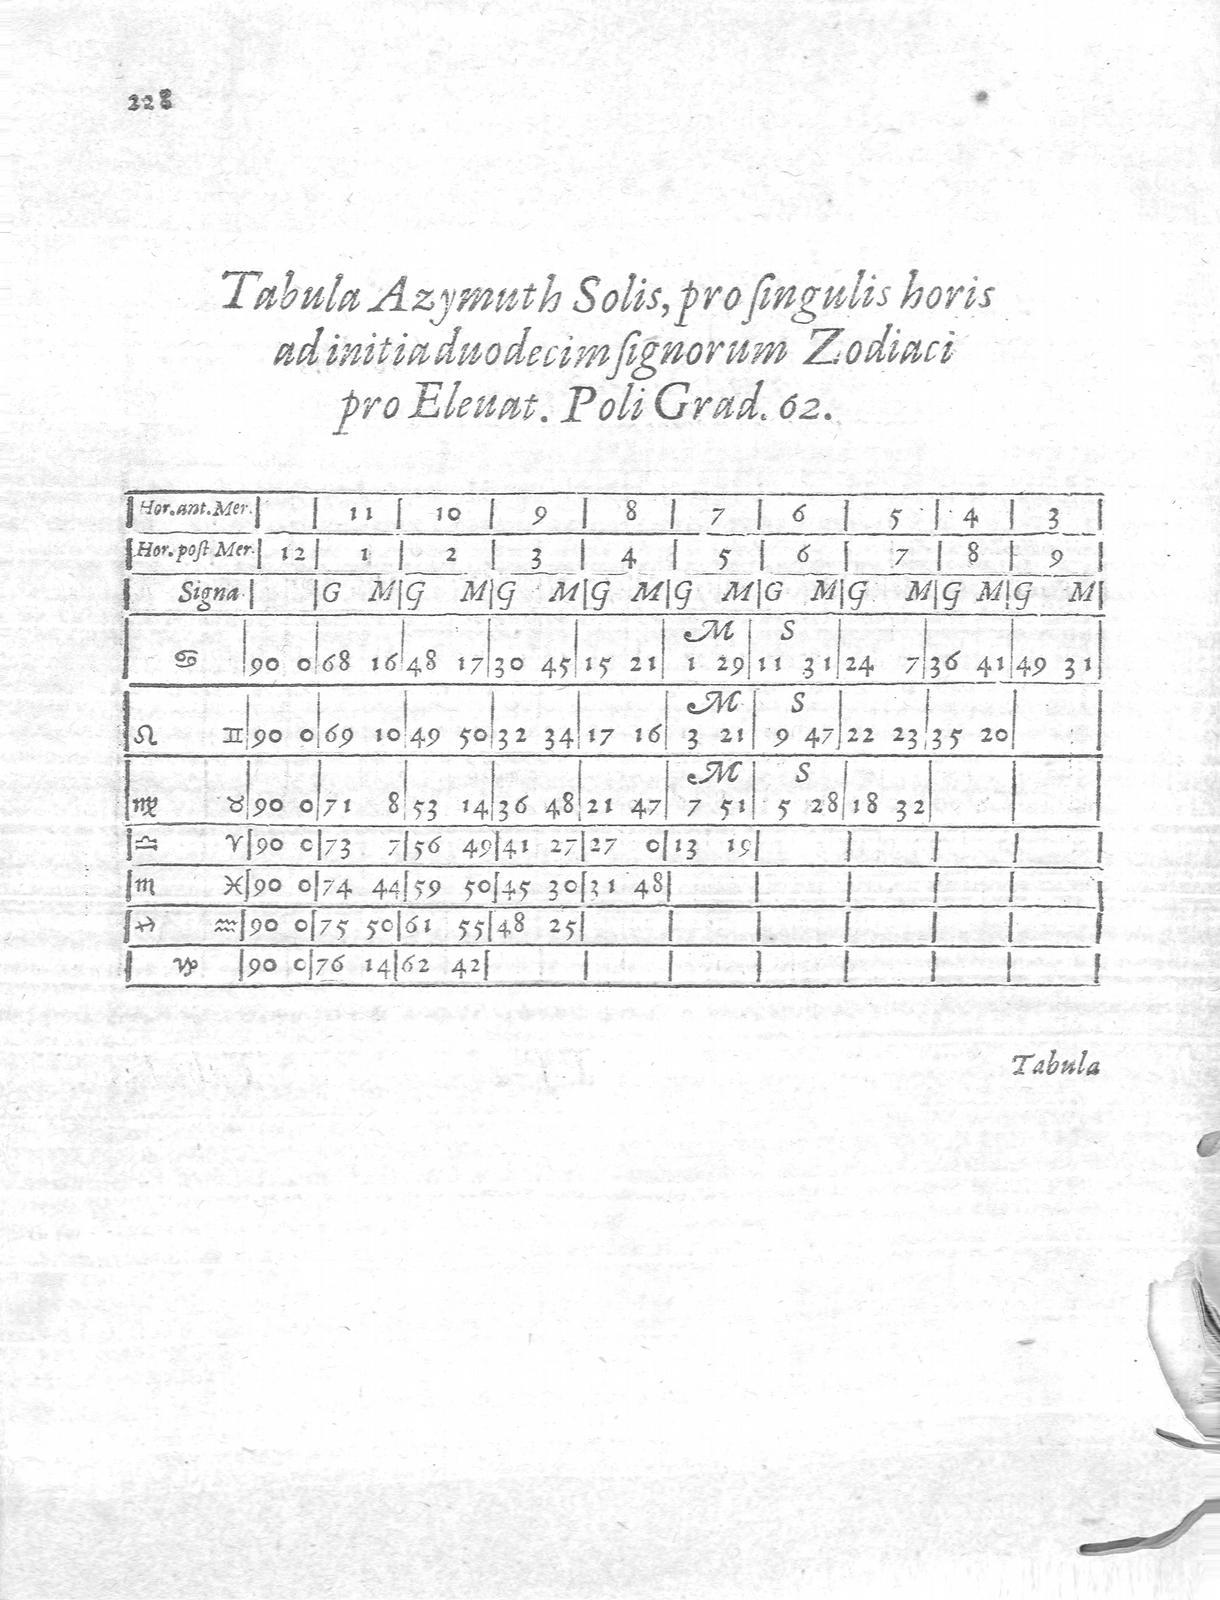 228
Tabula Azymuth Solis, pro ſingulis horis
ad initia duodecim ſignorum Zodiaci
pro Eleuat. Poli Grad. 62.
Hor. ant. Mer. | | 11 | 10 | 9 | 8 | 7 | 6 | 5 | 4 | 3
Hor. poſt Mer. | 12 | 1 | 2 | 3 | 4 | 5 | 6 | 7 | 8 | 9
Signa | | G M | G M | G M | G M | G M | G M | G M | G M | G M
M S
♋ | 90 0 | 68 16 | 48 17 | 30 45 | 15 21 | 1 29 | 11 31 | 24 7 | 36 41 | 49 31
M S
♌ ♊ | 90 0 | 69 10 | 49 50 | 32 34 | 17 16 | 3 21 | 9 47 | 22 23 | 35 20
M S
♍ ♉ | 90 0 | 71 8 | 53 14 | 36 48 | 21 47 | 7 51 | 5 28 | 18 32
♎ ♈ | 90 0 | 73 7 | 56 49 | 41 27 | 27 0 | 13 19
♏ ♓ | 90 0 | 74 44 | 59 50 | 45 30 | 31 48
♐ ♒ | 90 0 | 75 50 | 61 55 | 48 25
♑ | 90 0 | 76 14 | 62 42
Tabula